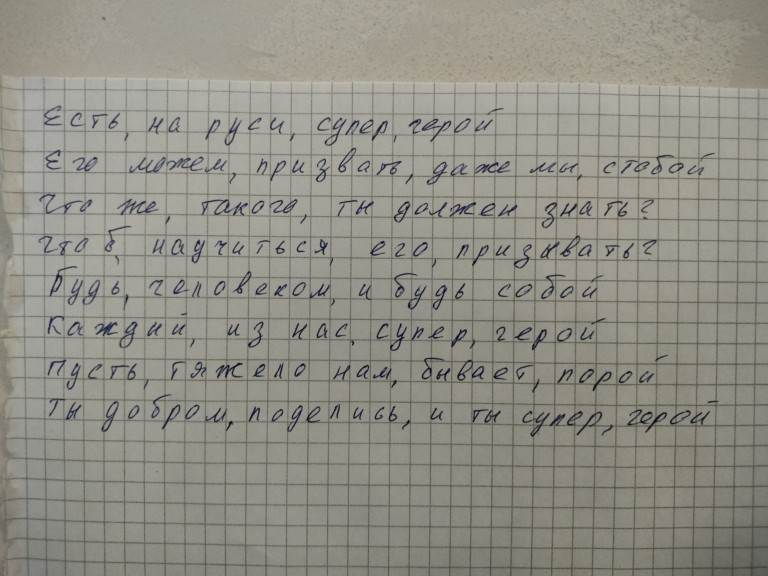 Есть, на руси, супер, герой
Его можем, призвать, даже мы, стобой
Что же, такого, ты должен знать?
Что б, научиться, его, призывать?
Будь, человеком, и будь собой
Каждый, из нас, супер, герой
Пусть, тяжело нам, бывает, порой
Ты добром, поделись, и ты супер, герой